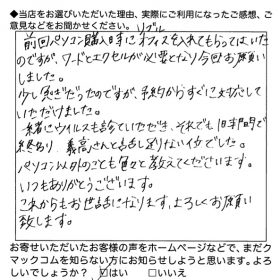 ◆当店をお選びいただいた理由、実際にご利用になったご感想、ご
意見などをお聞かせください。 リブル
前回パソコン購入時にオフィスを入れてもらってはいた
のですが、ワードとエクセルが必要となり今回お願い
しました。
少し急ぎだったのですが、予約からすぐに対応して
いただけました。
一緒にウイルスも診ていただき、それでも1日半程で
終わり、義高さんとも話し足りないくらいでした。
パソコン以外のことも色々と教えてくださいます。
いつもありがとうございます。
これからもお世話になります、よろしくお願い
致します。
お寄せいただいたお客様の声をホームページなどで、まだク
マックコムを知らない方にお知らせしようと思います。よろ
しいでしょうか? ☑はい □いいえ